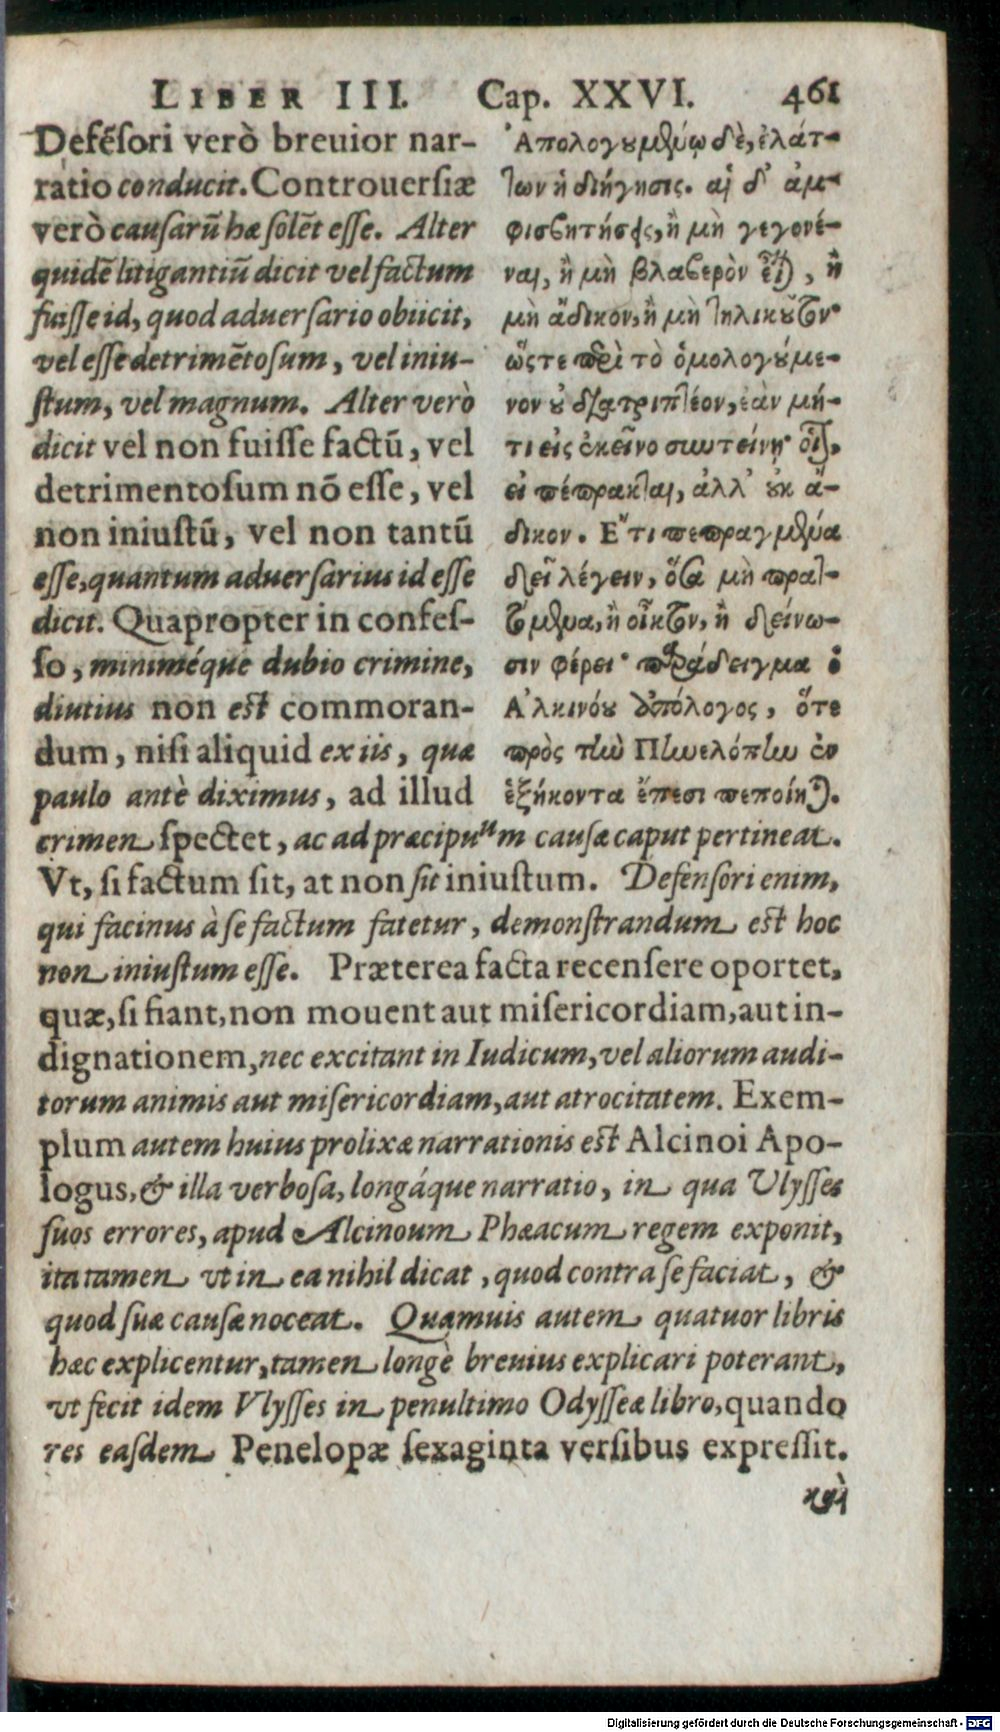 LIBER III. Cap. XXVI. 461
Defēsori verò breuior nar-
ratio conducit. Controuersiæ
verò causarū hæ solēt esse. Alter
quidē litigantiū dicit vel factum
fuisse id, quod aduersario obiicit,
vel esse detrimētosum, vel iniu-
stum, vel magnum. Alter verò
dicit vel non fuisse factū, vel
detrimentosum nō esse, vel
non iniustū, vel non tantū
esse, quantum aduersarius id esse
dicit. Quapropter in confes-
so, miniméque dubio crimine,
diutius non est commoran-
dum, nisi aliquid ex iis, quæ
paulo antè diximus, ad illud
Ἀπολογουμένῳ δὲ, ἐλάτ-
των ἡ διήγησις. αἱ δ᾽ ἀμ-
φισβητήσεις, ἢ μὴ γεγονέ-
ναι, ἢ μὴ βλαβερὸν εἶναι, ἢ
μὴ ἄδικον, ἢ μὴ τηλικοῦτον·
ὥστε περὶ τὸ ὁμολογούμε-
νον οὐ διατριπτέον, ἐὰν μή-
τι εἰς ἐκεῖνο συντείνῃ· οἷον,
εἰ πέπρακται, ἀλλ᾽ οὐκ ἄ-
δικον. Ἔτι πεπραγμένα
δεῖ λέγειν, ὅσα μὴ πρατ-
τόμενα, ἢ οἶκτον, ἢ δείνω-
σιν φέρει· παράδειγμα ὁ
Ἀλκινόου ἀπόλογος, ὅτε
πρὸς τὴν Πηνελόπην ἐν
ἑξήκοντα ἔπεσι πεποίηται.
crimen spectet, ac ad præcipuum causæ caput pertineat.
Vt, si factum sit, at non sit iniustum. Defensori enim,
qui facinus à se factum fatetur, demonstrandum est hoc
non iniustum esse. Præterea facta recensere oportet,
quæ, si fiant, non mouent aut misericordiam, aut in-
dignationem, nec excitant in Iudicum, vel aliorum audi-
torum animis aut misericordiam, aut atrocitatem. Exem-
plum autem huius prolixæ narrationis est Alcinoi Apo-
logus, & illa verbosa, longáque narratio, in qua Ulysses
suos errores, apud Alcinoum Phæacum regem exponit,
ita tamen vt in ea nihil dicat, quod contra se faciat, &
quod suæ causæ noceat. Quamuis autem quatuor libris
hæc explicentur, tamen longè breuius explicari poterant,
vt fecit idem Vlysses in penultimo Odysseæ libro, quando
res easdem Penelopæ sexaginta versibus expressit.
καὶ
Digitalisierung gefördert durch die Deutsche Forschungsgemeinschaft - DFG